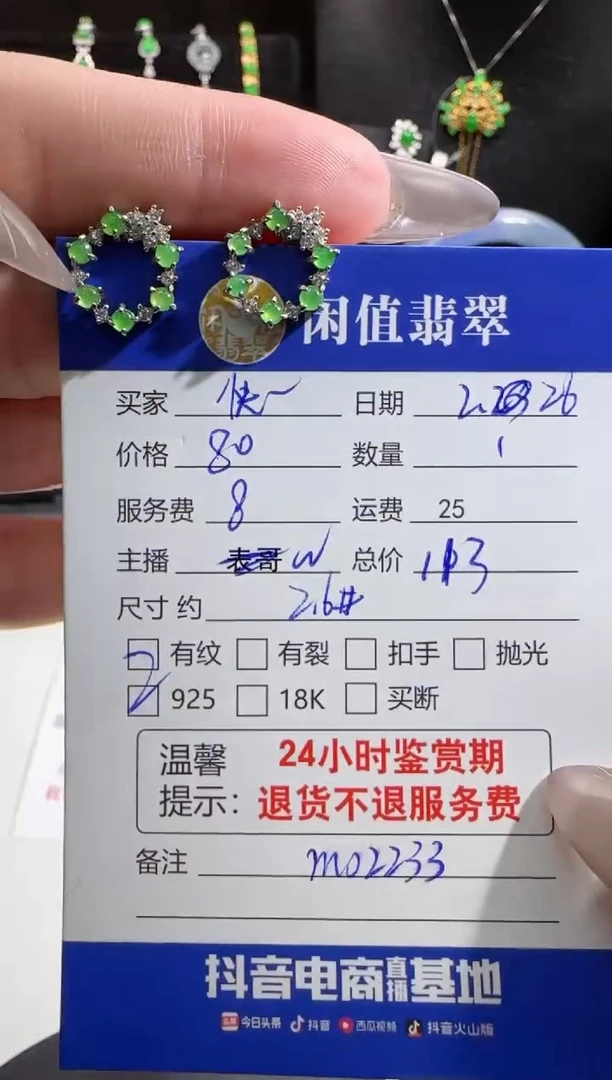 闲值翡翠
买家 快 日期 2.26
价格 80 数量 1
服务费 8 运费 25
主播 表哥 W 总价 113
尺寸 约 2.6#
有纹 有裂 扣手 抛光
925 18K 买断
温馨 24小时鉴赏期
提示: 退货不退服务费
备注 m02233
抖音电商直播基地
头条 今日头条 抖音 西瓜视频 抖音火山版